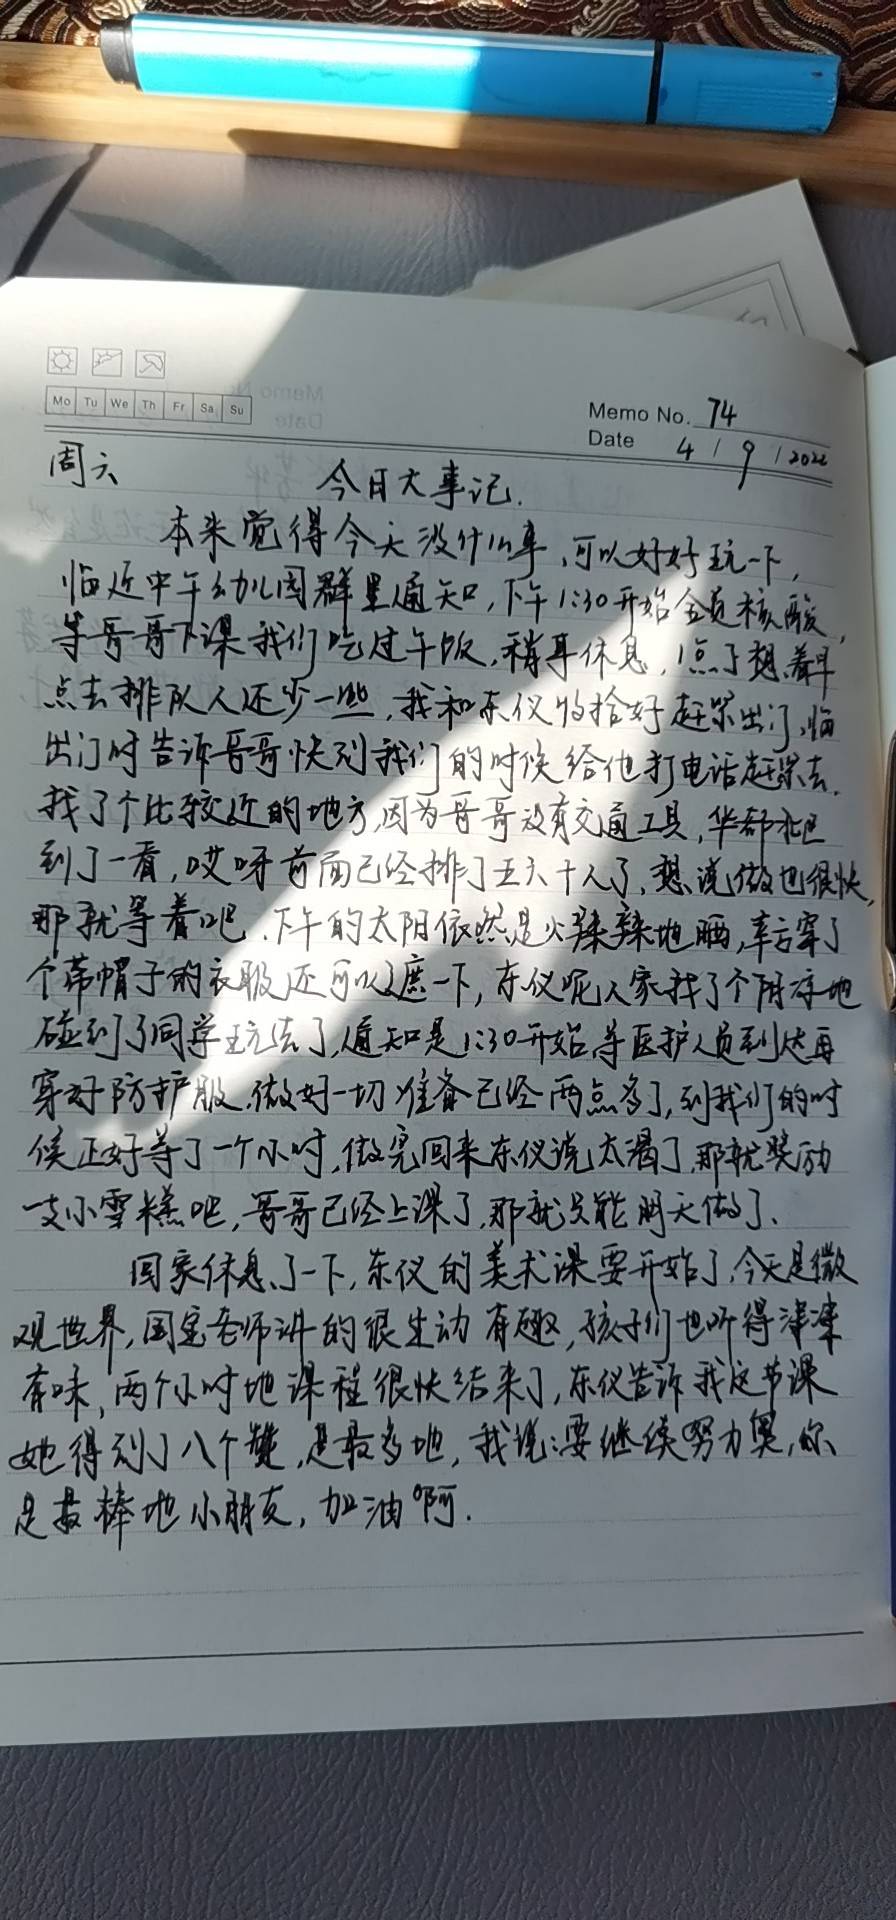 Mo Tu We Th Fr Sa Su
Memo No. 74
Date 4 / 9 / 2022
周六 今日大事记.
本来觉得今天没什么事,可以好好玩一下,
临近中午幼儿园群里通知,下午1:30开始全员核酸,
等哥哥下课我们吃过午饭,稍事休息,1点了想着早
点去排队人还少一些,我和东仪收拾好赶紧出门,临
出门时告诉哥哥快到我们的时候给他打电话赶紧去.
找了个比较近的地方,因为哥哥没有交通工具,华都北区
到了一看,哎呀前面已经排了五六十人了,想说做也很快,
那就等着吧.下午的太阳依然是火辣辣地晒,幸亏穿了
个带帽子的衣服还可以遮一下,东仪呢人家找了个阴凉地
碰到了同学玩去了,通知是1:30开始,等医护人员到达再
穿好防护服.做好一切准备已经两点多了,到我们的时
候正好等了一个小时,做完回来东仪说太渴了,那就奖励
一支小雪糕吧,哥哥已经上课了,那就只能明天做了.
回家休息了一下,东仪的美术课要开始了,今天是微
观世界,国宝老师讲的很生动有趣,孩子们也听得津津
有味,两个小时地课程很快结束了,东仪告诉我这节课
她得到了八个赞,是最多地,我说:要继续努力奥,你
是最棒地小朋友,加油啊.